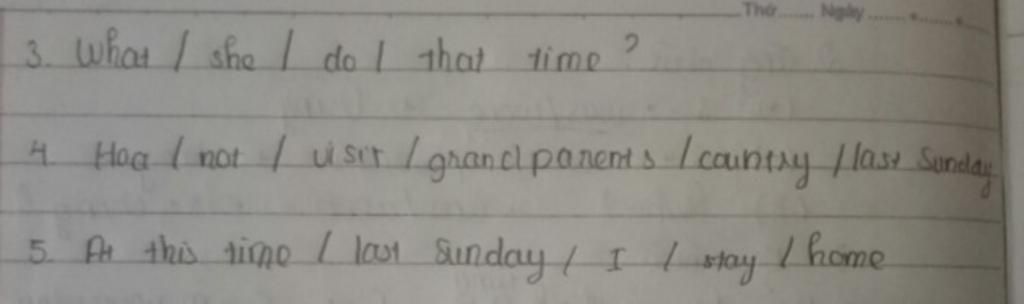 Thứ....... Ngày.......
3. What / she / do / that time ?
4. Hoa / not / visit / grandparents / country / last Sunday
5. At this time / last Sunday / I / stay / home